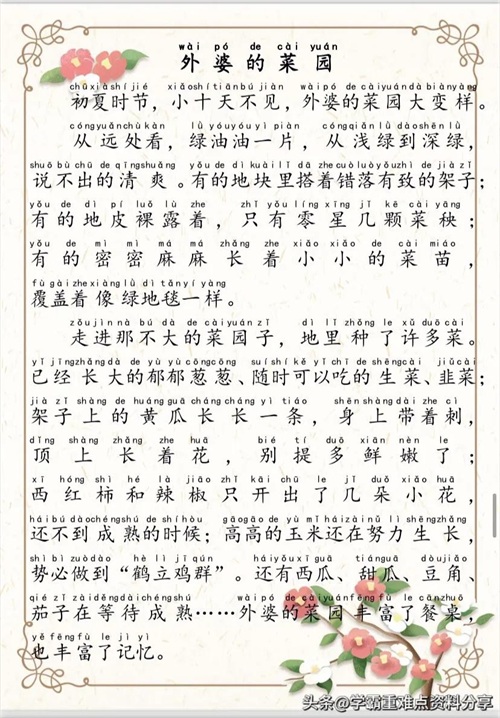 wài pó de cài yuán
外婆的菜园
chūxiàshíjié xiǎoshítiānbújiàn wàipó de càiyuándàbiànyàng
初夏时节，小十天不见，外婆的菜园大变样。
cóngyuǎnchùkàn lǜyóuyóuyìpiàn cóngqiǎnlǜdàoshēnlǜ
从远处看，绿油油一片，从浅绿到深绿，
shuōbùchūdeqīngshuǎng yǒudedìkuàilǐdāzhecuòluòyǒuzhìdejiàzi
说不出的清爽。有的地块里搭着错落有致的架子；
yǒu de dì pí luǒ lù zhe zhǐ yǒu líng xīng jǐ kē cài yāng
有的地皮裸露着，只有零星几颗菜秧；
yǒu de mì mì má má zhǎng zhe xiǎo xiǎo de cài miáo
有的密密麻麻长着小小的菜苗，
fùgàizhexiànglǜdìtǎnyíyàng
覆盖着像绿地毯一样。
zǒujìnnàbúdàdecàiyuánzi dìlǐzhǒnglexǔduōcài
走进那不大的菜园子，地里种了许多菜。
yǐjīngzhǎngdàdeyùyùcōngcōng suíshíkěyǐchīdeshēngcài jiǔcài
已经长大的郁郁葱葱、随时可以吃的生菜、韭菜；
jiàzishàngdehuángguāchángchángyìtiáo shēnshàngdàizhecì
架子上的黄瓜长长一条，身上带着刺，
dǐng shàng zhǎng zhe huā bié tí duō xiān nèn le
顶上长着花，别提多鲜嫩了；
xī hóng shì hé là jiāo zhǐ kāi chū le jǐ duǒ xiǎo huā
西红柿和辣椒只开出了几朵小花，
háibúdàochéngshúdeshíhòu gāogāodeyùmǐháizàinǔlìshēngzhǎng
还不到成熟的时候；高高的玉米还在努力生长，
shìbìzuòdào hèlìjīqún háiyǒuxīguā tiánguā dòujiǎo
势必做到“鹤立鸡群”。还有西瓜、甜瓜、豆角、
qiézizàiděngdàichéngshú wàipódecàiyuánfēngfùlecānzhuō
茄子在等待成熟……外婆的菜园丰富了餐桌，
yěfēngfùlejìyì
也丰富了记忆。
头条@学霸重难点资料分享